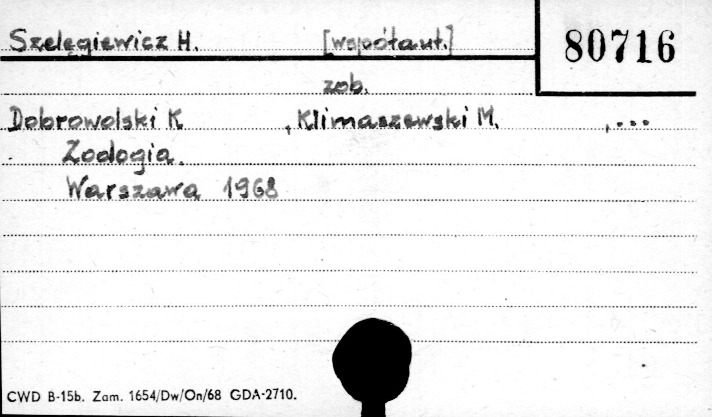 Szelęgiewicz H. [współaut.] 80716
zob.
Dobrowolski K , Klimaszewski M. , ...
Zoologia.
Warszawa 1968
CWD B-15b. Zam. 1654/Dw/On/68 GDA-2710.